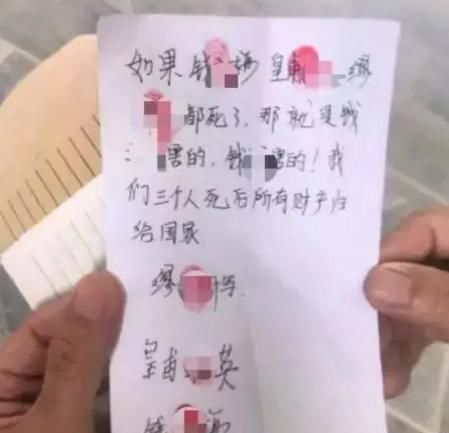 如果钱 梅 皇甫 缪
都死了,那就是钱
害的,钱 害的!我
们三个人死后所有财产归
给国家
缪
皇甫 英
钱